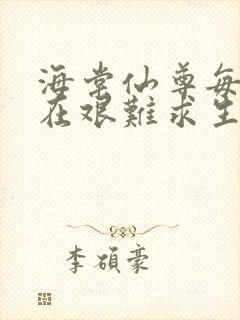 海棠仙尊每
在艰難求生
李碩豪